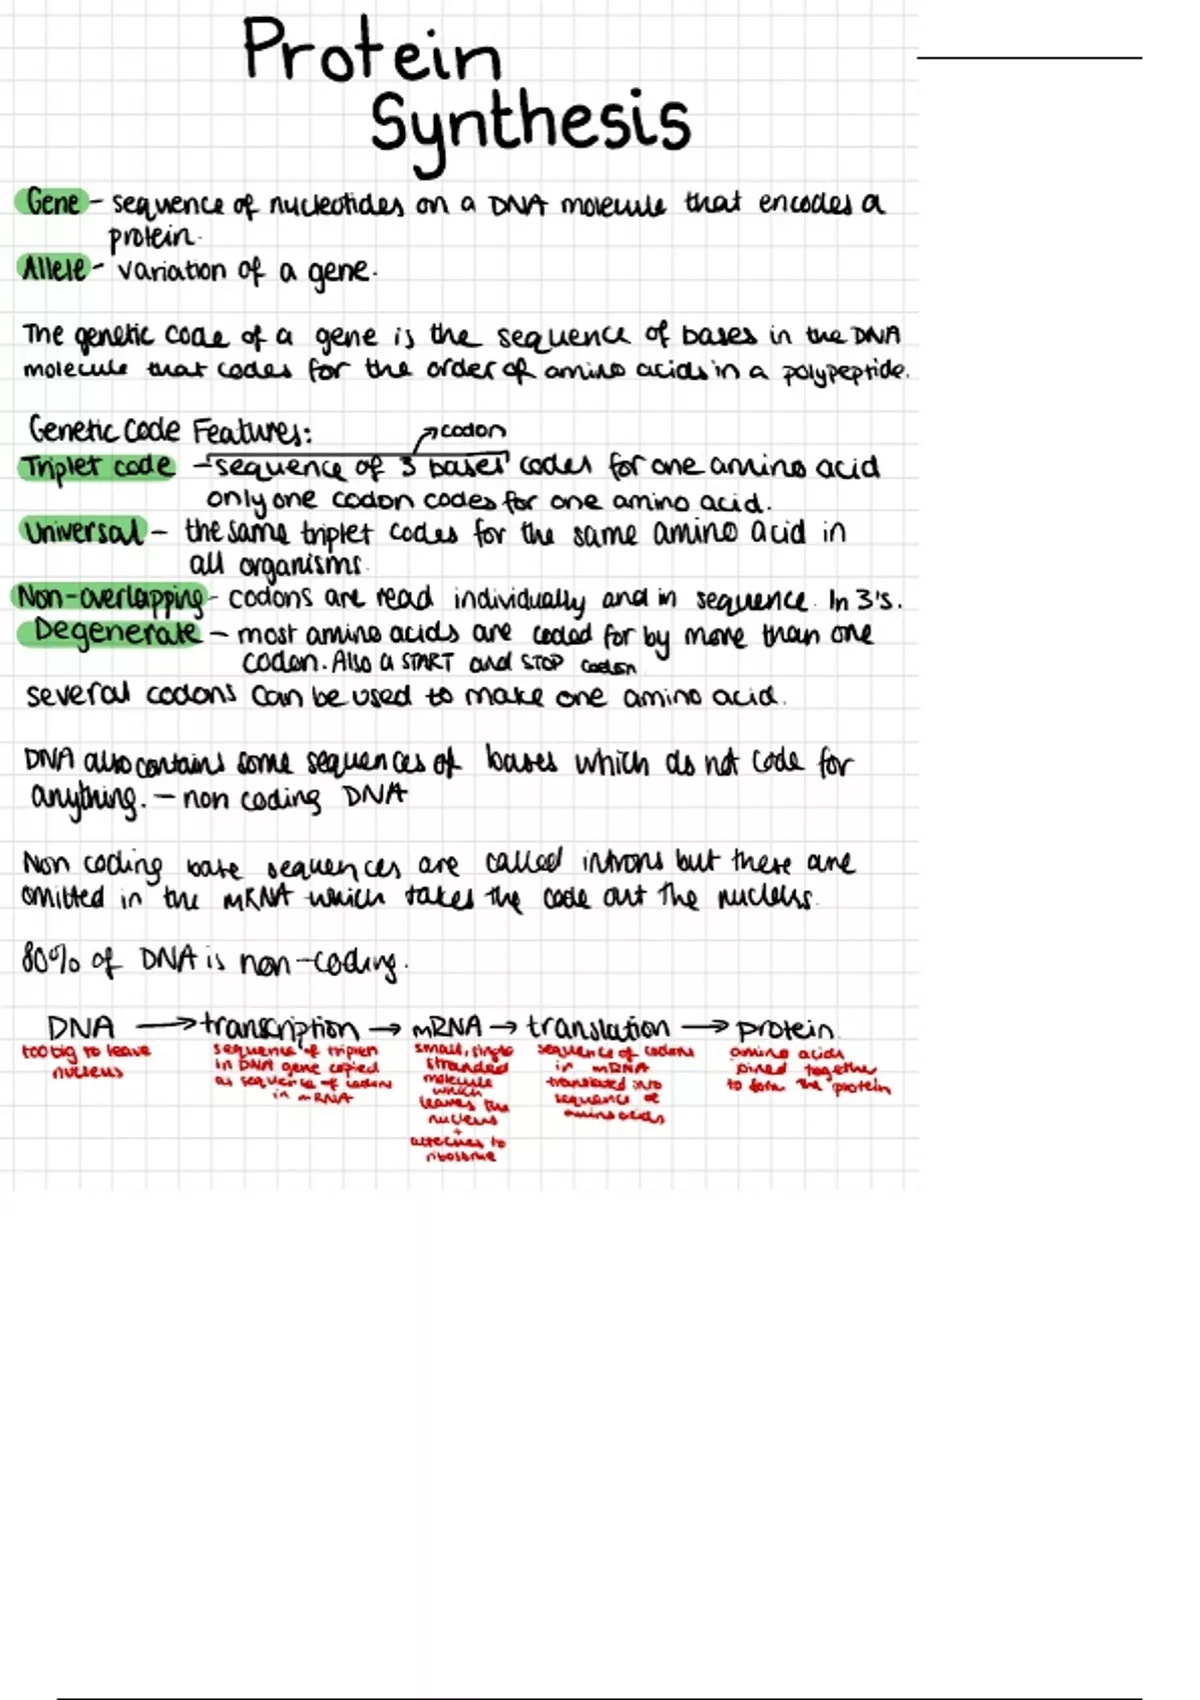 Protein
Synthesis
Gene - sequence of nucleotides on a DNA molecule that encodes a
protein.
Allele - variation of a gene.
The genetic code of a gene is the sequence of bases in the DNA
molecule that codes for the order of amino acids in a polypeptide.
Genetic Code Features:
codon
Triplet code - sequence of 3 bases codes for one amino acid
only one codon codes for one amino acid.
Universal - the same triplet codes for the same amino acid in
all organisms.
Non-overlapping - codons are read individually and in sequence. In 3's.
Degenerate - most amino acids are coded for by more than one
codon. Also a START and STOP codon
several codons can be used to make one amino acid.
DNA also contains some sequences of bases which do not code for
anything. - non coding DNA
Non coding base sequences are called introns but there are
omitted in the mRNA which takes the code out the nucleus.
80% of DNA is non-coding.
DNA → transcription → mRNA → translation → protein
too big to leave
nucleus
sequence of triplets
in DNA gene copied
as sequence of codons
in mRNA
small, single
stranded
molecule
which
leaves the
nucleus
+
attaches to
ribosome
sequence of codons
in mRNA
translated into
sequence of
amino acids
amino acids
joined together
to form the protein